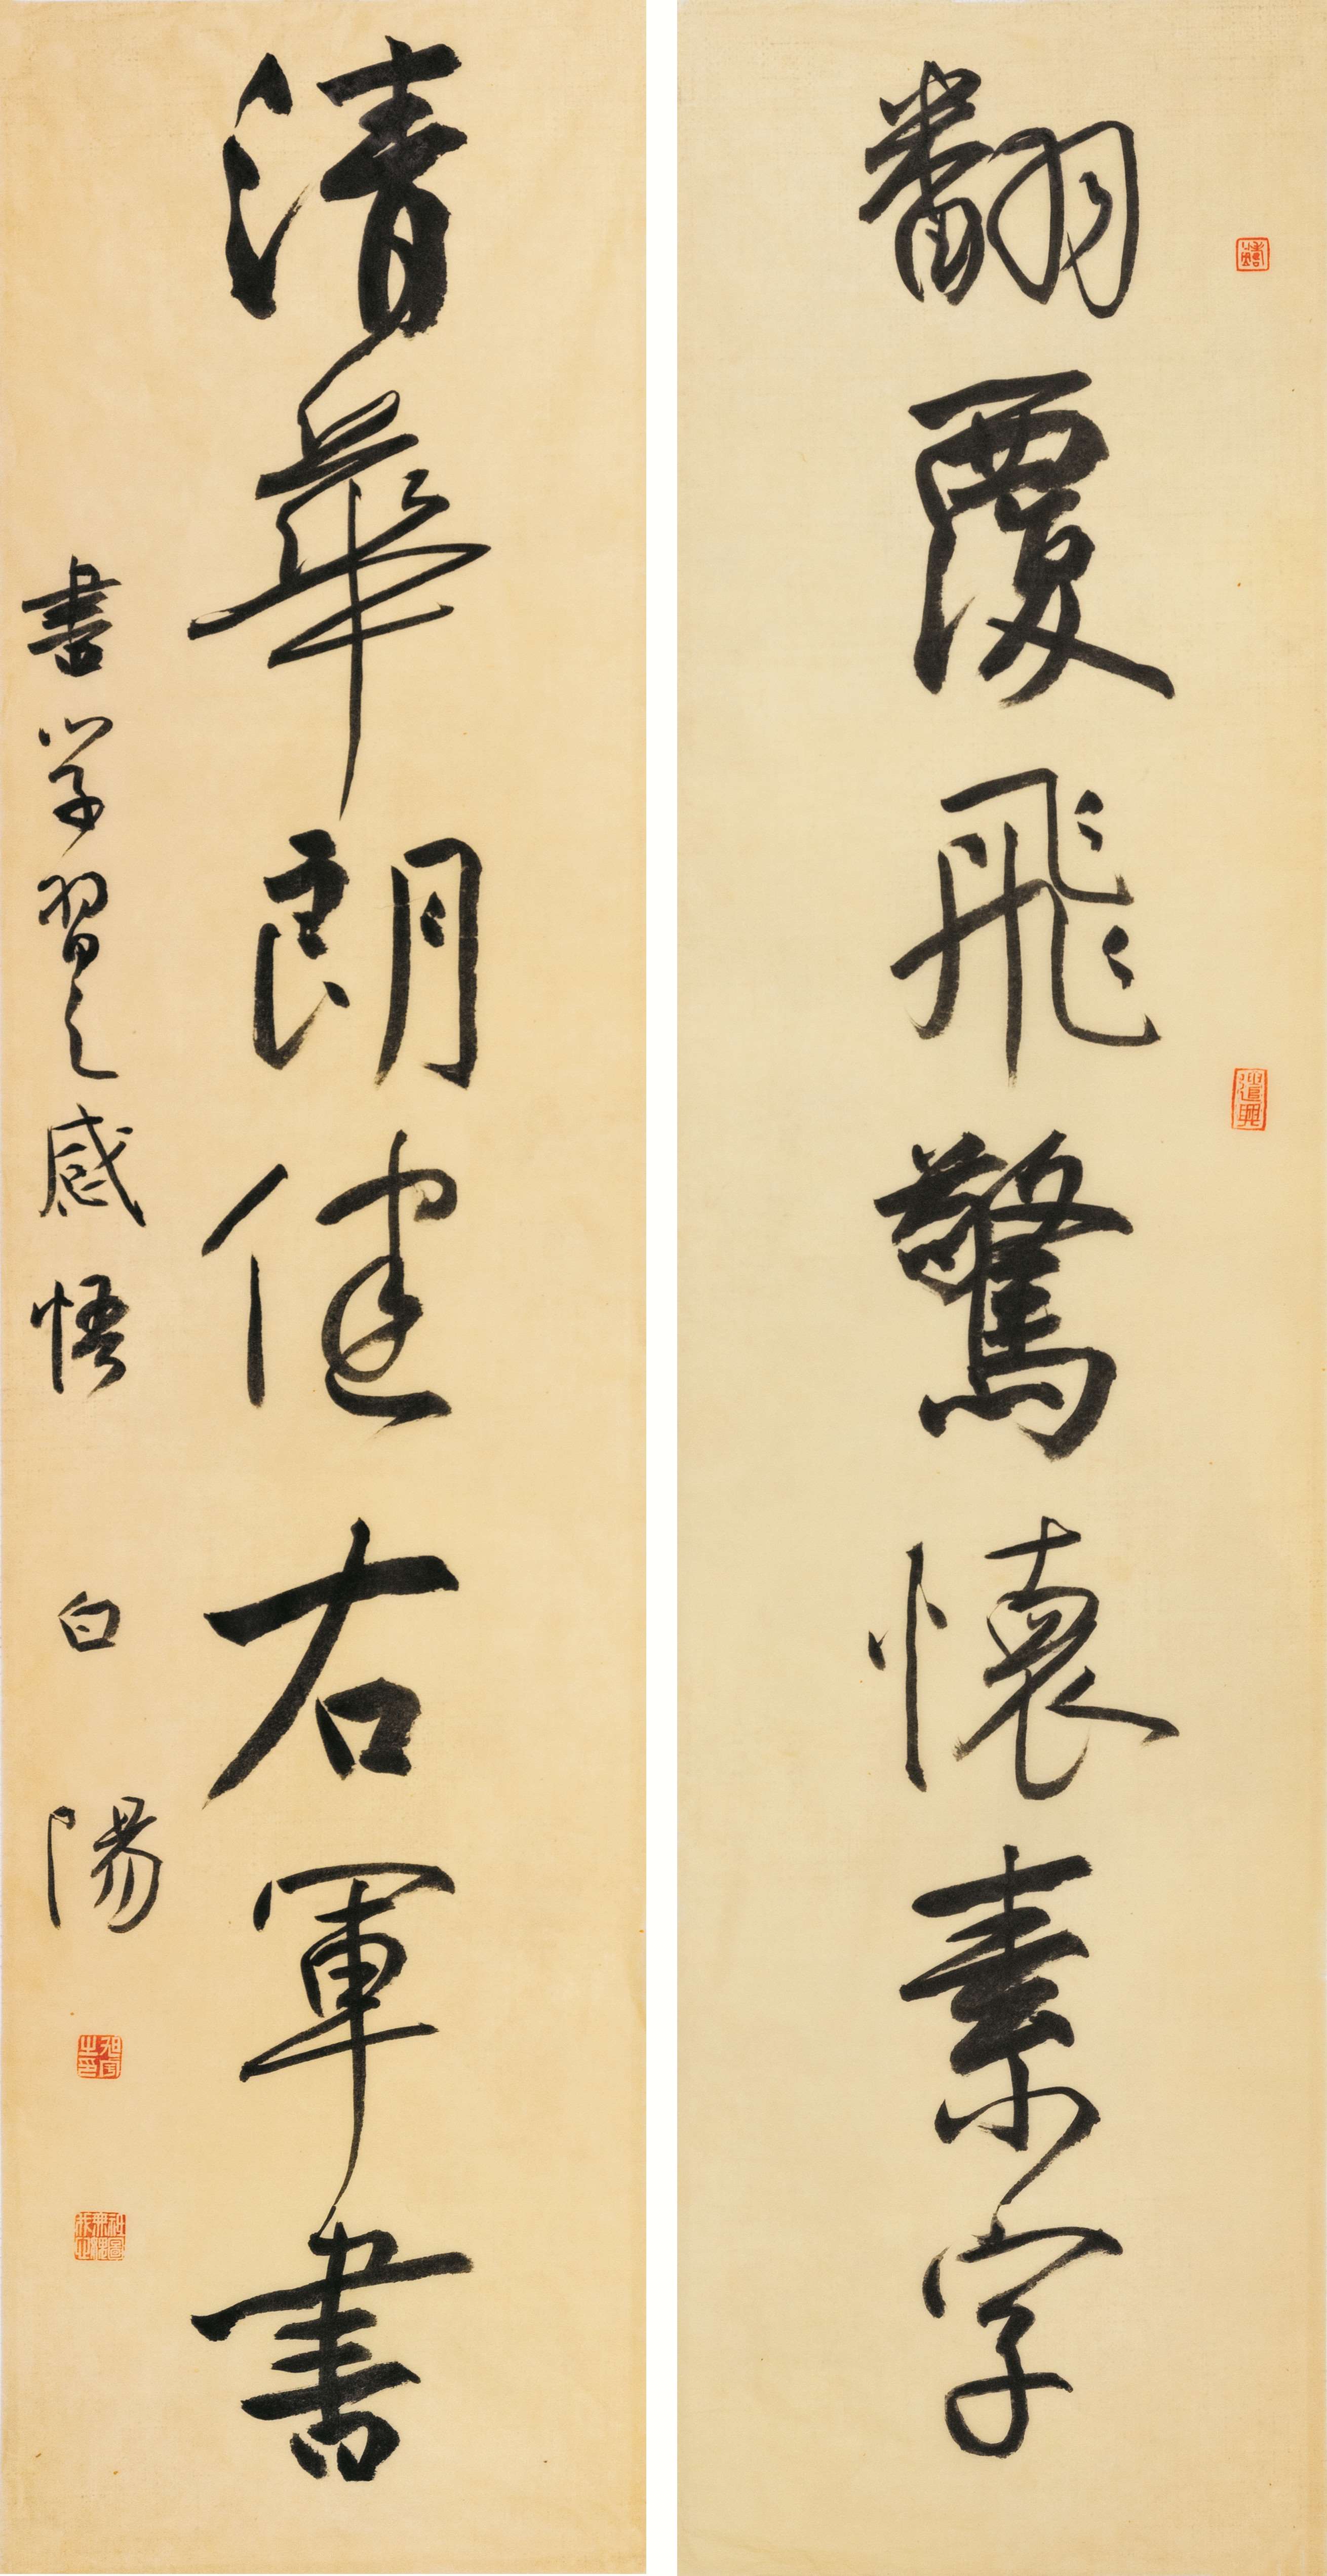 翻覆飛驚懷素字
清華朗健右軍書
書学習之感悟 白陽
遣興